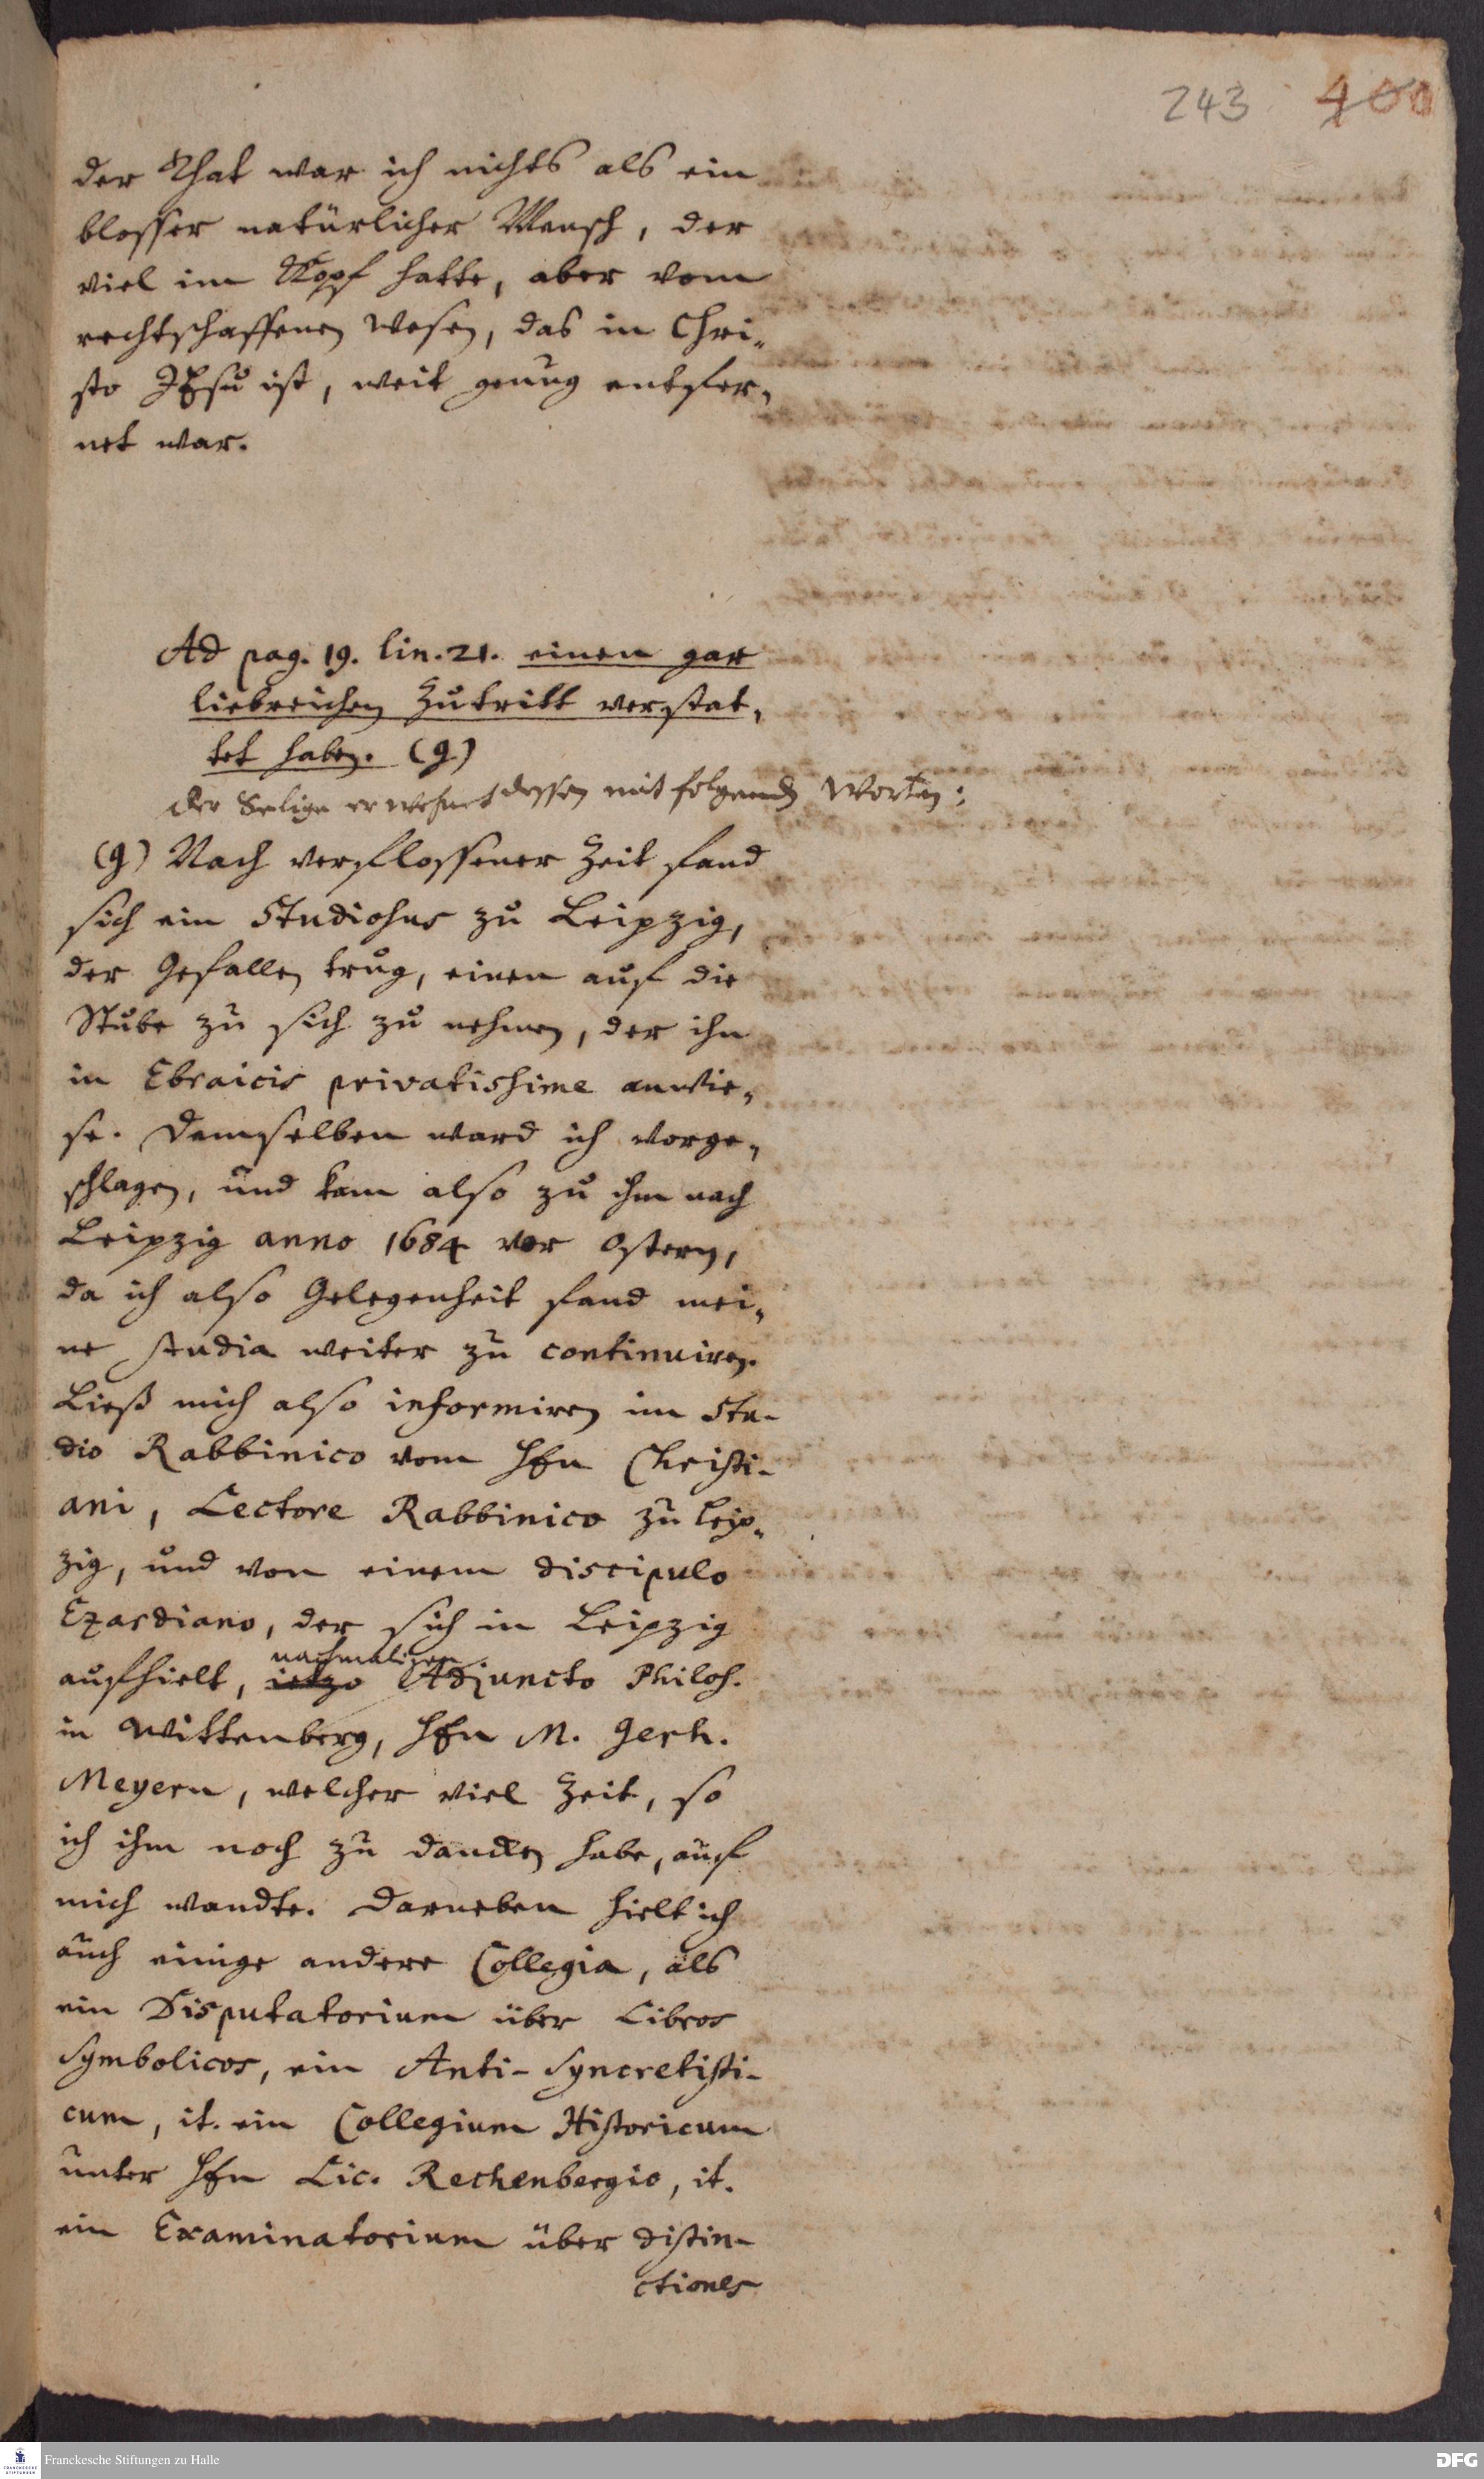 243 400
der That war ich nichts als ein
blosser natürlicher Mensch, der
viel im Kopf hatte, aber vom
rechtschaffenen Wesen, das in Chri-
sto JEsu ist, weit genug entfer-
net war.
Ad pag. 19. lin. 21. einen gar
liebreichen Zutritt verstat-
tet haben. (g)
der Selige erwehnet dessen mit folgenden Worten:
(g) Nach verflossener Zeit fand
sich ein Studiosus zu Leipzig,
der Gefallen trug, einen auf die
Stube zu sich zu nehmen, der ihn
in Ebraicis privatissime anwie-
se. Demselben ward ich vorge-
schlagen, und kam also zu ihm nach
Leipzig anno 1684 vor Ostern,
da ich also Gelegenheit fand mei-
ne studia weiter zu continuiren.
Ließ mich also informiren im Stu-
dio Rabbinico vom Hrn Christi-
ani, Lectore Rabbinico zu Leip-
zig, und von einem discipulo
Ezardiano, der sich in Leipzig
nachmaligen
aufhielt, ietzo Adjuncto Philos.
in Wittenberg, Hrn M. Gerh.
Meyern, welcher viel Zeit, so
ich ihm noch zu dancken habe, auf
mich wandte. Darneben hielt ich
auch einige andere Collegia, als
ein Disputatorium über Libros
Symbolicos, ein Anti-Syncretisti-
cum, it. ein Collegium Historicum
unter Hrn Lic. Rechenbergio, it.
ein Examinatorium über distin-
ctiones
Franckesche Stiftungen zu Halle
FRANCKESCHE STIFTUNGEN
DFG